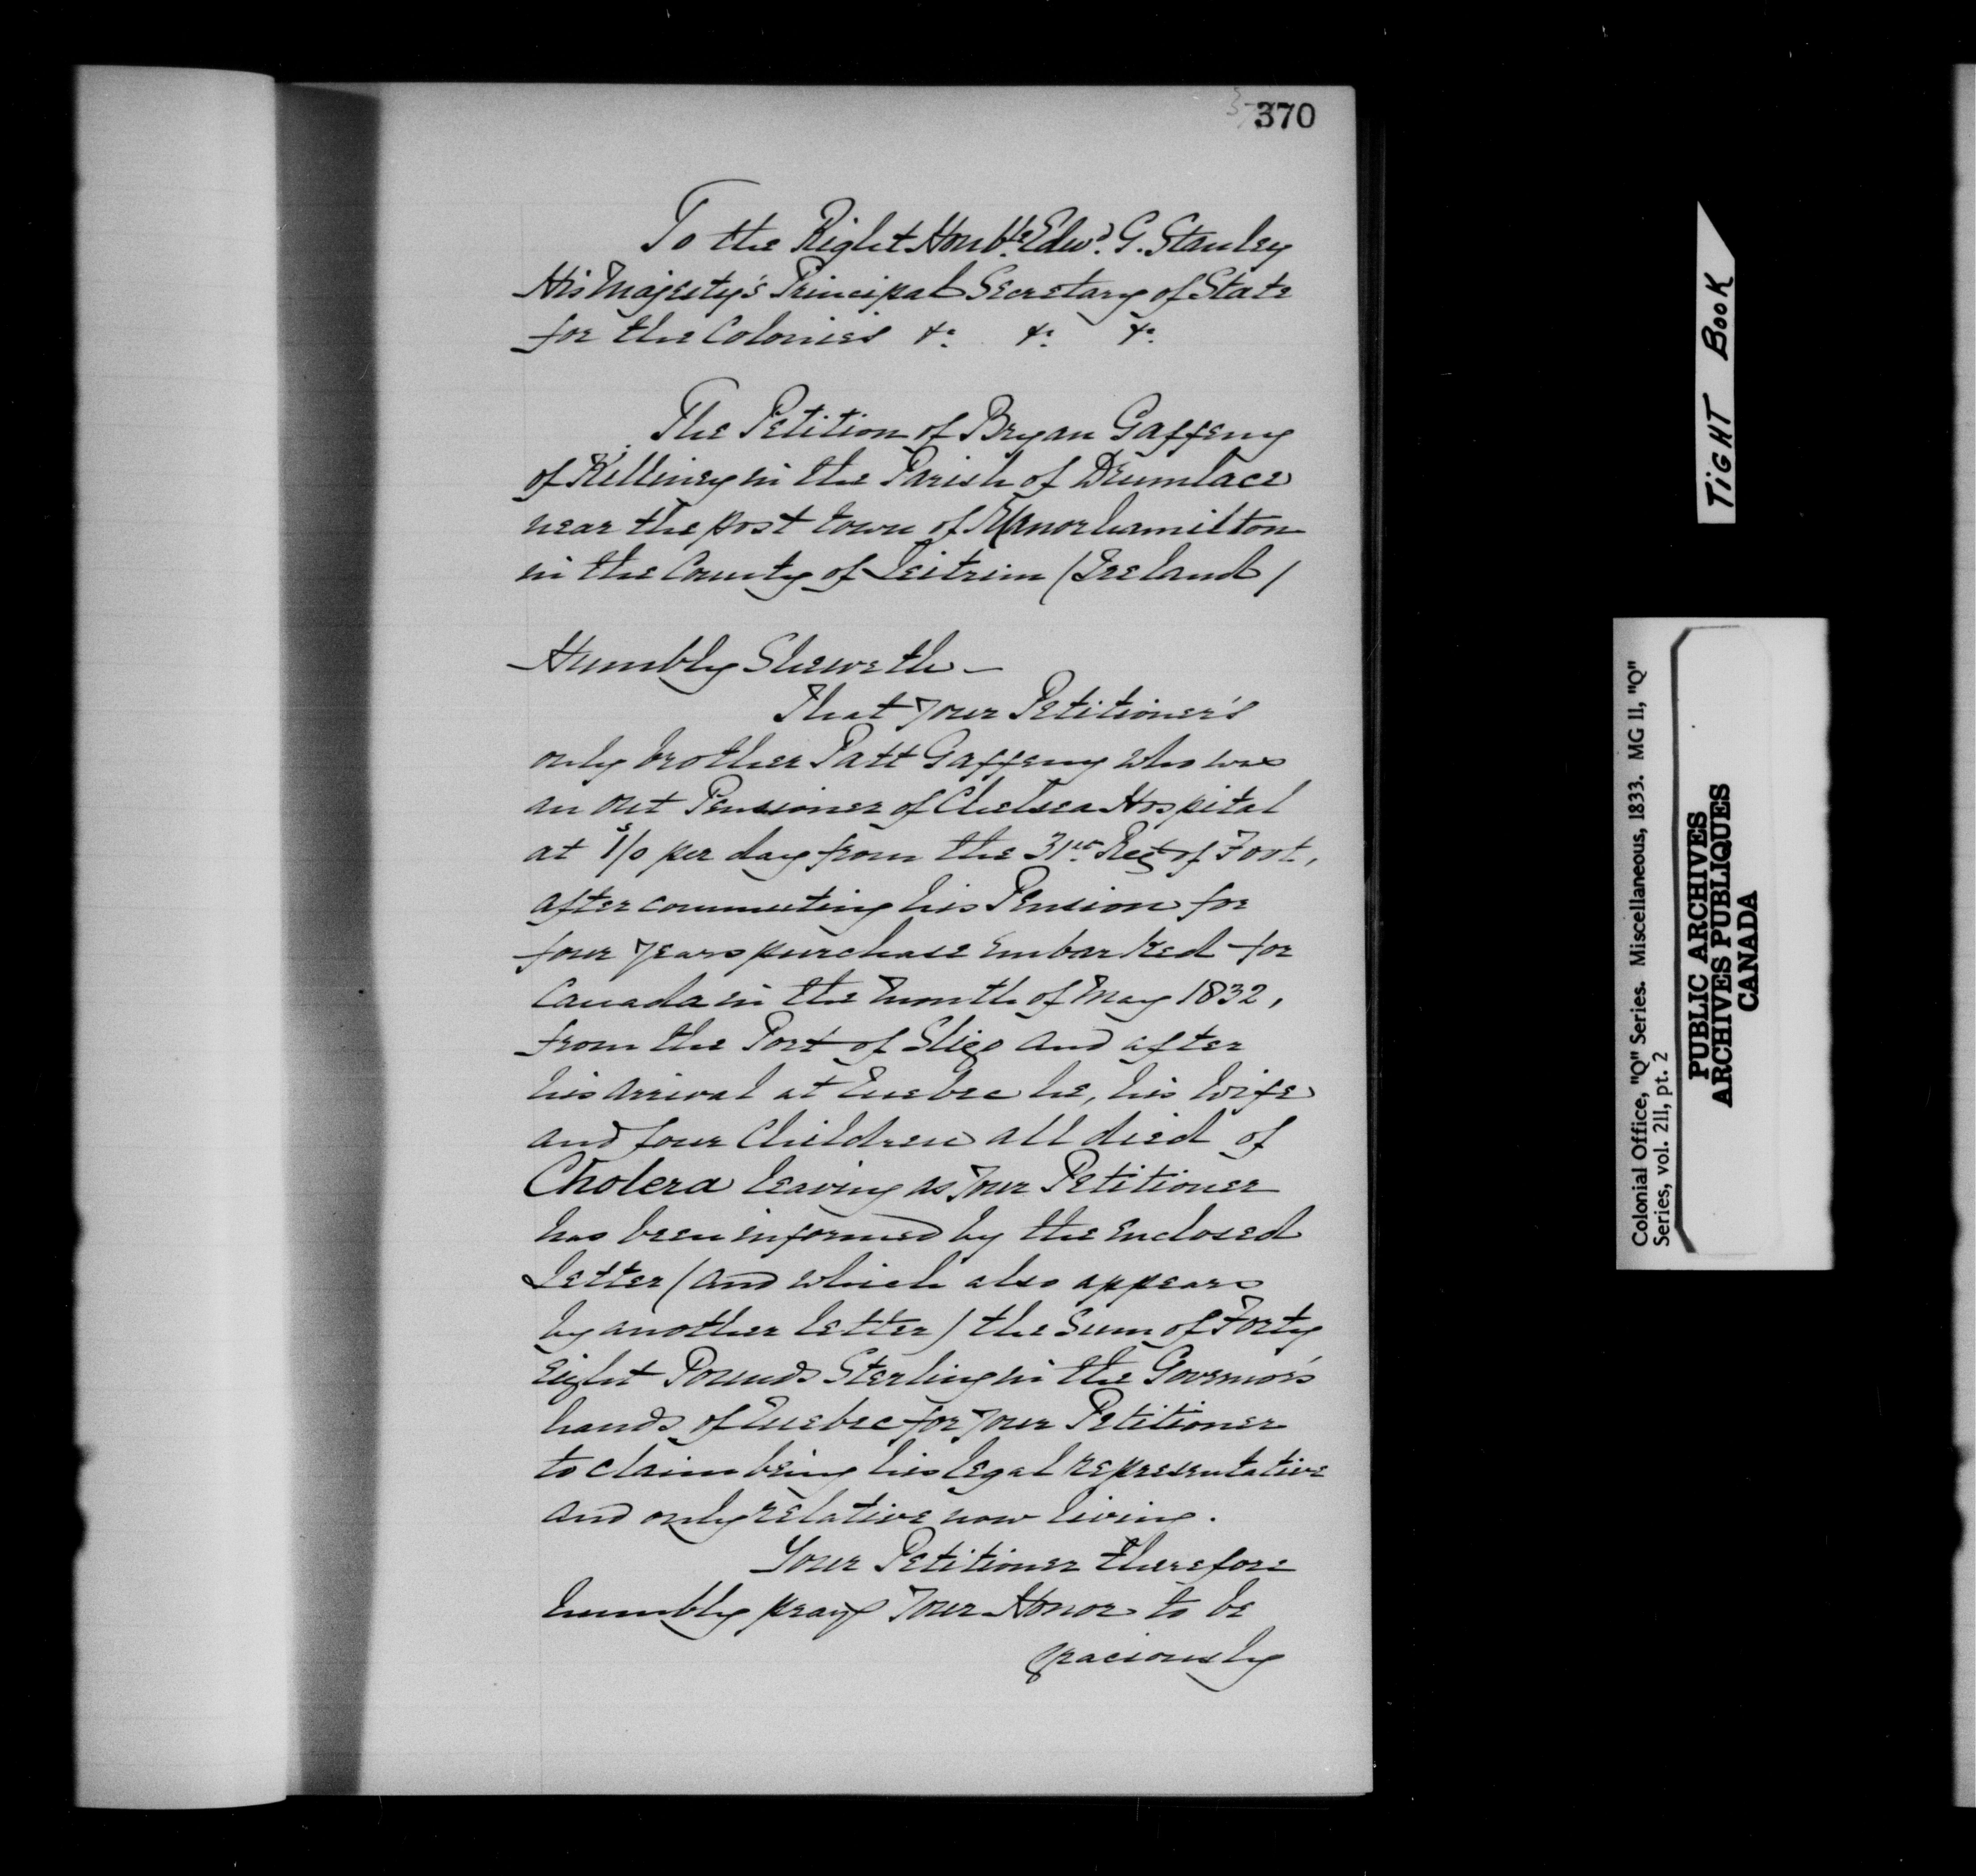 370
To the Right Honble. Edwd. G. Stanley
His Majesty's Principal Secretary of State
for the Colonies &c. &c. &c.
The Petition of Bryan Gaffeny
of Killiney in the Parish of Drumlace
near the post town of Manorhamilton
in the County of Leitrim (Ireland)
Humbly Sheweth—
That your Petitioner's
only brother Patt Gaffeny who was
an out Pensioner of Chelsea Hospital
at 1s/0 per day from the 31st. Regt of Foot,
after commuting his Pension for
four years purchase embarked for
Canada in the month of May 1832,
from the Port of Sligo and after
his arrival at Quebec he, his wife
and four Children all died of
Cholera leaving as your Petitioner
has been informed by the enclosed
letter (and which also appears
by another letter) the Sum of Forty
Eight Pounds Sterling in the Governor's
hands of Quebec for your Petitioner
to claim being his legal representative
and only relative now living.
Your Petitioner therefore
humbly prays Your Honor to be
graciously
TiGHT BOOK
Colonial Office, "Q" Series. Miscellaneous, 1833. MG 11, "Q"
Series, vol. 211, pt. 2
PUBLIC ARCHIVES
ARCHIVES PUBLIQUES
CANADA